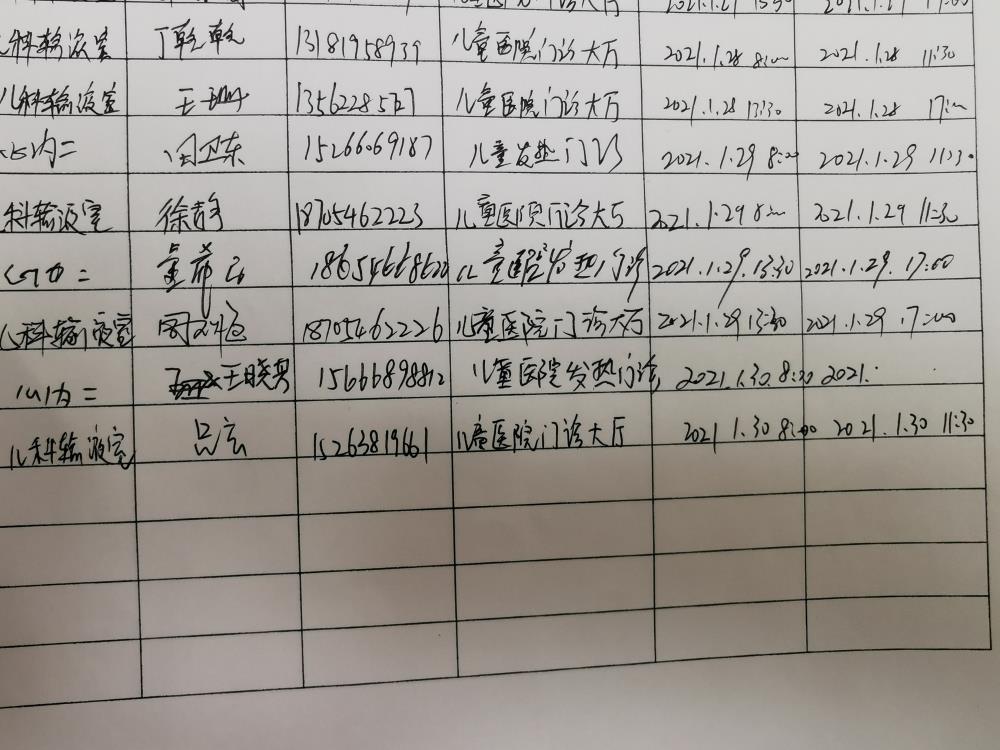 2021.1.27 13:30 2021.1.27 17:00
儿科输液室 丁乾乾 13181958939 儿童医院门诊大厅 2021.1.28 8:00 2021.1.28 11:30
儿科输液室 王 儿童医院门诊大厅 2021.1.28 13:30 2021.1.28 17:00
闫卫东 15266069187 儿童发热门诊 2021.1.29 8:00 2021.1.29 11:30
科输液室 徐静 18705462223 儿童医院门诊大厅 2021.1.29 8:00 2021.1.29 11:30
儿童医院发热门诊 2021.1.29. 13:30 2021.1.29. 17:00
儿科输液室 周 18705462226 儿童医院门诊大厅 2021.1.29 13:30 2021.1.29 17:00
王晓 15666898812 儿童医院发热门诊 2021.1.30. 8:30 2021.
儿科输液室 吕玄 15263819661 儿童医院门诊大厅 2021 1.30 8:00 2021.1.30 11:30